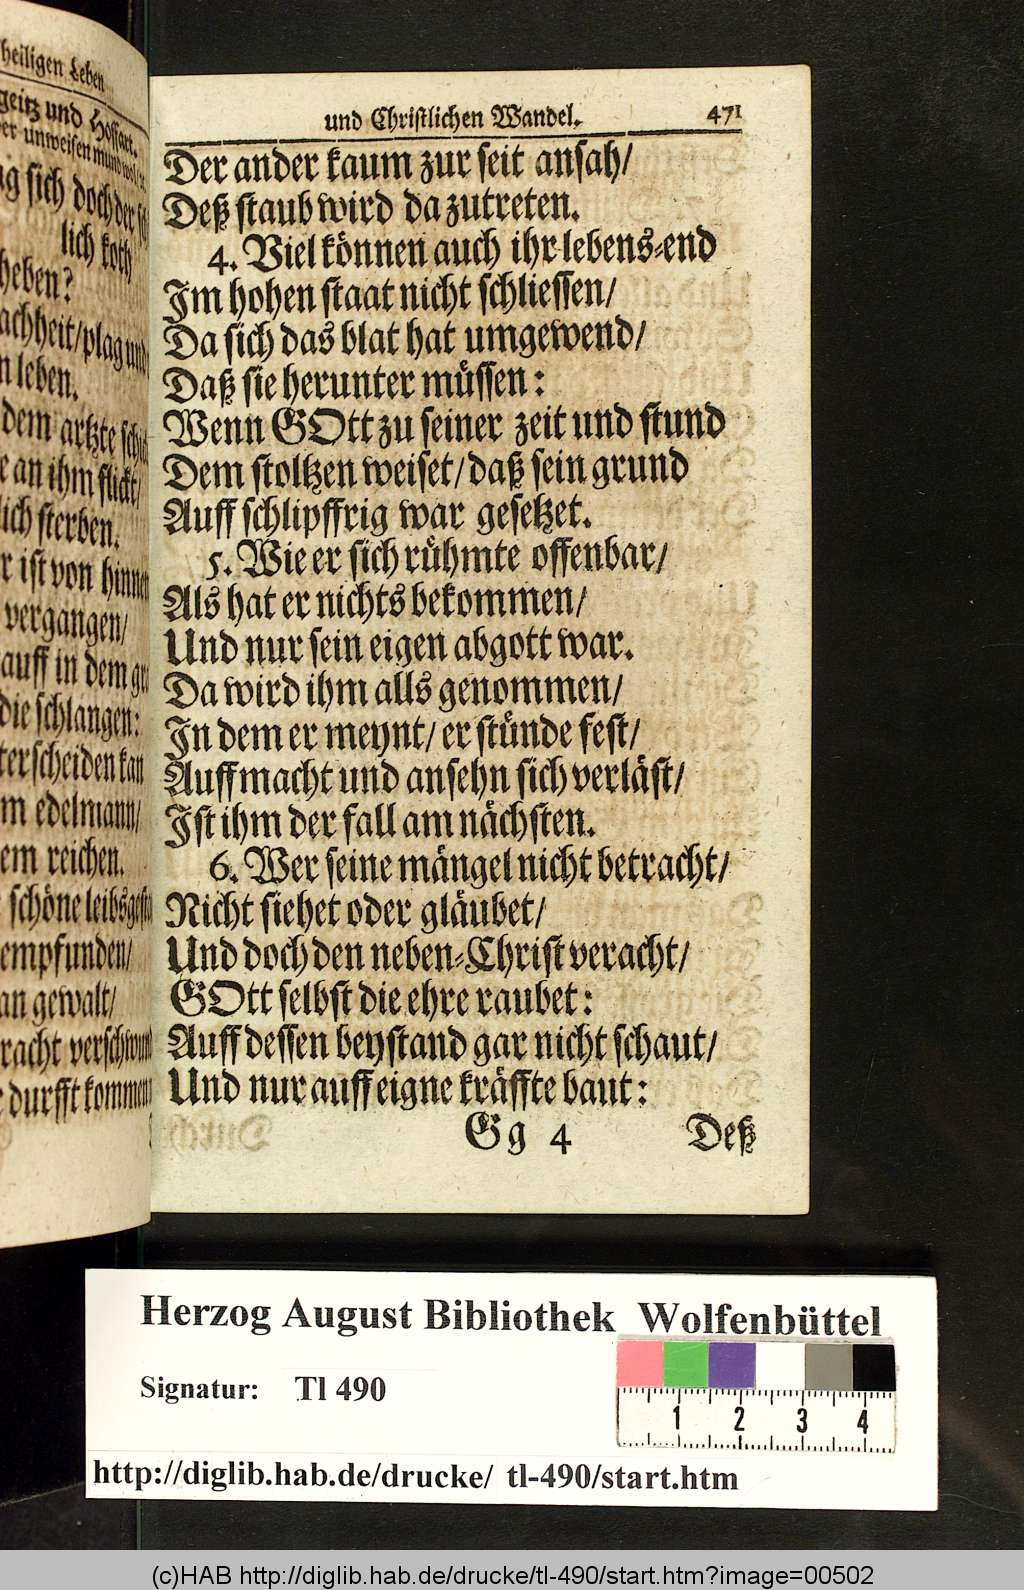 heiligen Leben
geitz und Hoffart.
sich doch der
lich koth
heben?
achheit/ plag und
n leben.
dem artzte
an ihm flickt/
lich sterben.
r ist von hinnen
vergangen/
auff in dem
die schlangen:
terscheiden kan
m edelmann/
em reichen.
schöne leibsgest
empfunden/
an gewalt/
racht verschwund
durfft kommen
und Christlichen Wandel. 471
Der ander kaum zur seit ansah/
Deß staub wird da zutreten.
4. Viel können auch ihr lebens-end
Im hohen staat nicht schliessen/
Da sich das blat hat umgewend/
Daß sie herunter müssen:
Wenn GOtt zu seiner zeit und stund
Dem stoltzen weiset/ daß sein grund
Auff schlipffrig war gesetzet.
5. Wie er sich rühmte offenbar/
Als hat er nichts bekommen/
Und nur sein eigen abgott war.
Da wird ihm alls genommen/
In dem er meynt/ er stünde fest/
Auff macht und ansehn sich verläst/
Ist ihm der fall am nächsten.
6. Wer seine mängel nicht betracht/
Nicht siehet oder gläubet/
Und doch den neben-Christ veracht/
GOtt selbst die ehre raubet:
Auff dessen beystand gar nicht schaut/
Und nur auff eigne kräffte baut:
Gg 4 Deß
Herzog August Bibliothek Wolfenbüttel
Signatur: Tl 490
1 2 3 4
http://diglib.hab.de/drucke/ tl-490/start.htm
(c)HAB http://diglib.hab.de/drucke/tl-490/start.htm?image=00502